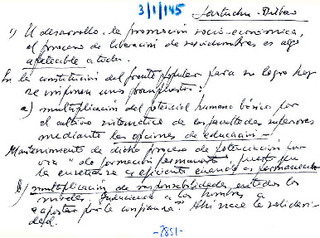 3/1/145
1) El desarrollo, la promoción socio-económica,
el proceso de liberación de servidumbres es algo
aplicable a todos.
En la constitución del frente popular para su logro hay
se imponen unos presupuestos:
a) multiplicación del potencial humano básico por
el cultivo sistemático de las facultades superiores
mediante las opciones de educación —
Mantenimiento de dicho proceso de potenciación por
una "de formación permanente", puesto que
la enseñanza es eficiente cuando es permanente
b) multiplicación de responsabilidades en todos los
niveles, a los hombres a
aportar por la confianza. Ahí nace la solidari-
dad.
-2851-